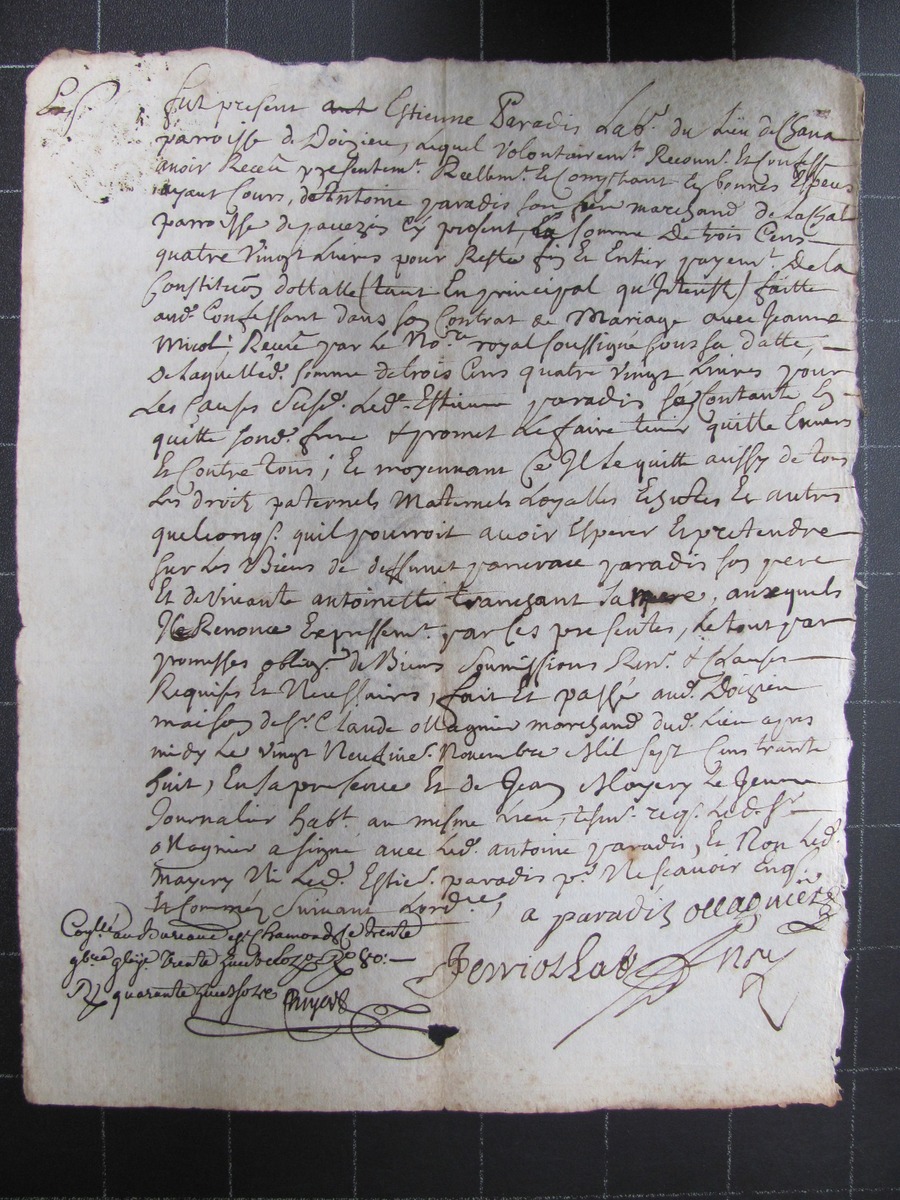 fut présent Estienne Paradis Labr. du Lieu de Chana
parroisse de Doizieu, Lequel volontairemt. Reconn. Et Confesse
avoir Receu presentemt. Reellemt. Et Comptant En bonnes Especes
ayant Cours, de Antoine paradis son marchand de Lachal
parroisse de pavezin Cy present, La Somme De trois Cens
quatre Vingt Livres pour Reste fin Et Entier payemt. De la
Constitu͠on dottalle (tant En principal qu'Interest) faitte
aud. Confessant dans son Contrat de Mariage avec Jeanne
Receu par Le Nore. royal soussigné sous sa datte,
De Laquelle d. Somme de trois Cens quatre Vingt Livres pour
Les Causes Susd. Led. Estienne paradis se Contante En
quitte sond. frere & promet Le faire tenir quitte Envers
Et Contre tous; Et moyennant Ce Il Le quitte aussy de tous
Les droits paternels Maternels Loyalles Echutes Et autres
quelconqs. quil pourroit avoir Esperer Et pretendre
sur Les Biens de deffunt pancrace paradis son pere
Et de Vivante antoinette tranchant sa mere, auxquels
Il Renonce Expressemt. par Ces presentes, Le tout par
promesses obligs. de Biens Soumissions Ren. & Clauses
Requises Et Necessaires, fait Et passé aud. Doizieu
maison de Sr. Claude Ollagnier marchand dud. Lieu apres
midy Le vingt Neufvie. Novembre Mil sept Cens trante
huit, En sa presence Et de Jean Mayery Le Jeune
Journalier habt. au mesme Lieu, tesm. reqs. Led. Sr.
Ollagnier a signé avec Led. antoine paradis, Et Non Led.
Mayery Ni Led. Estie. paradis pr. Ne scavoir Enqs.
Et Sommés Suivant Lord.ce,
a paradis ollagnier
Conllé au Bureau de St. Chamond Ce trente
9bre
quarante huit sols